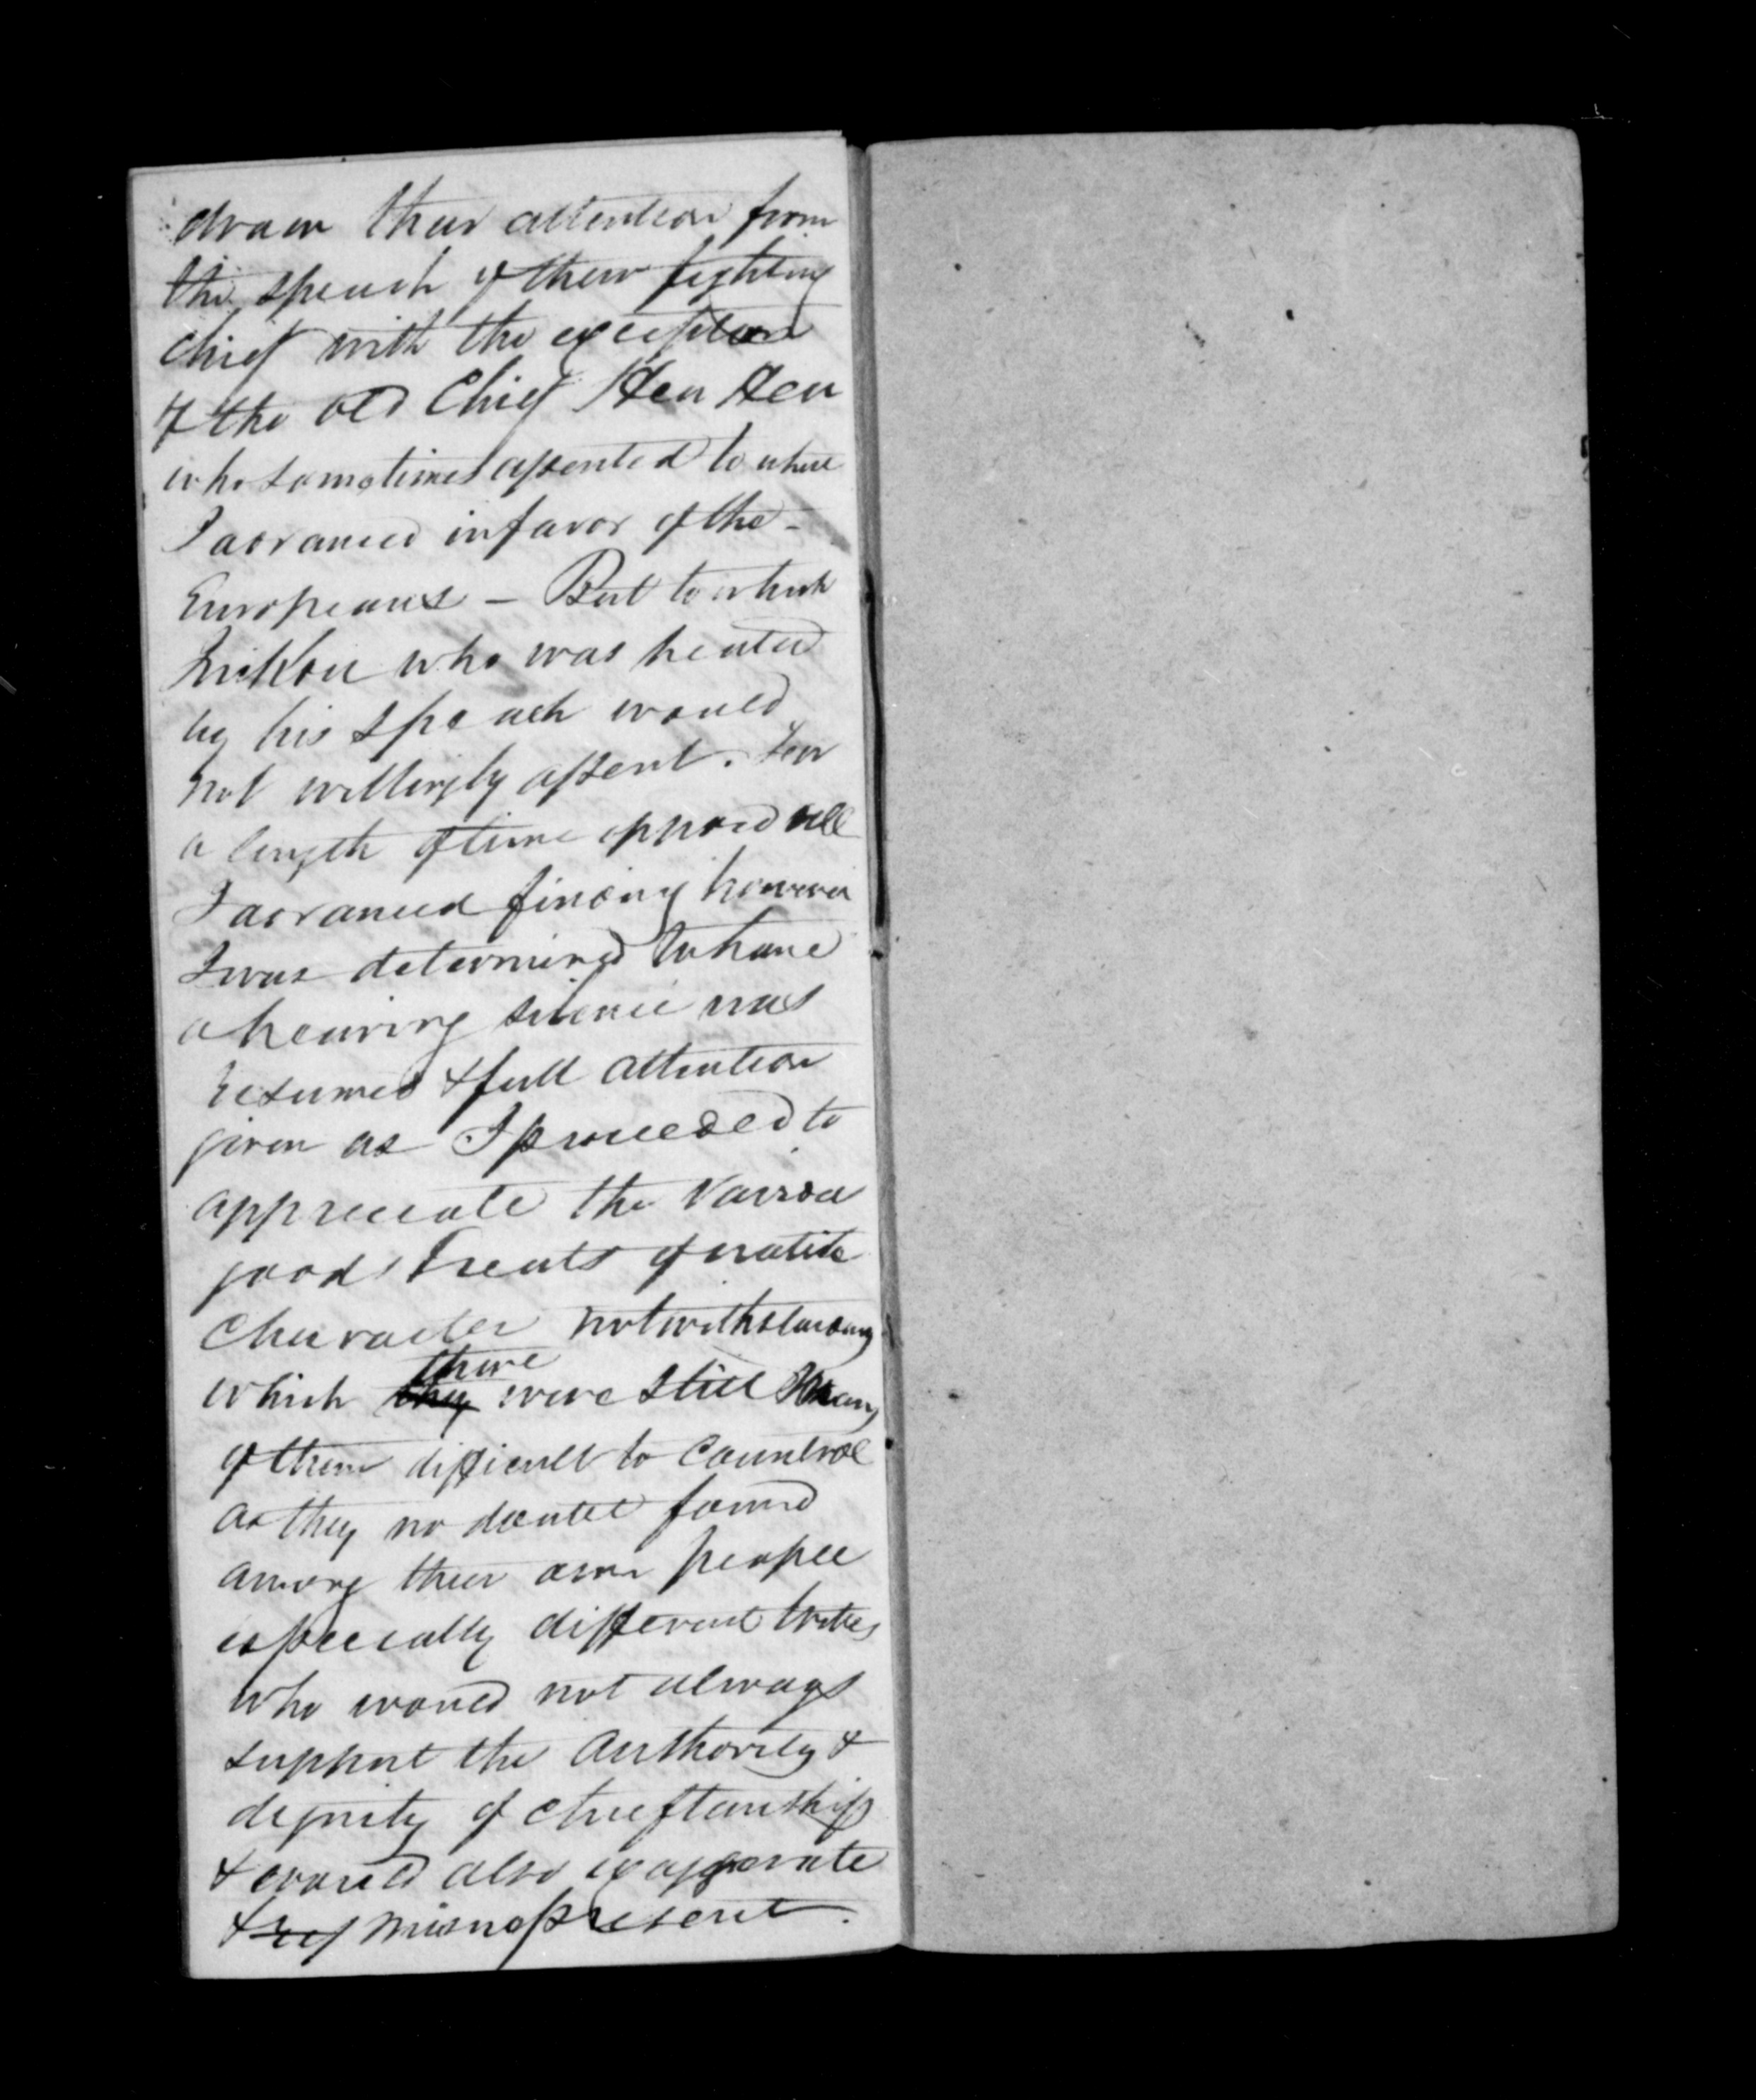 draw their attention from
the speech of their fighting
chief with the exception
of the old Chief Heu Heu
who sometimes assented to what
I advanced in favor of the -
Europeans - But to which
who was heated
by his speach would
not willingly assent. &
a length of time opposed all
I advanced finding however
I was determined to have
a hearing silence was
resumed & full attention
given as I proceeded to
appreciate the
good treats of native
character notwithstanding
which they there were still many
of them difficult to countrol
as they no doubt found
among their own people
especially different tribes
who would not always
support the authority &
dignity of chieftanship
& would also exaggerate
& rep misrepresent.